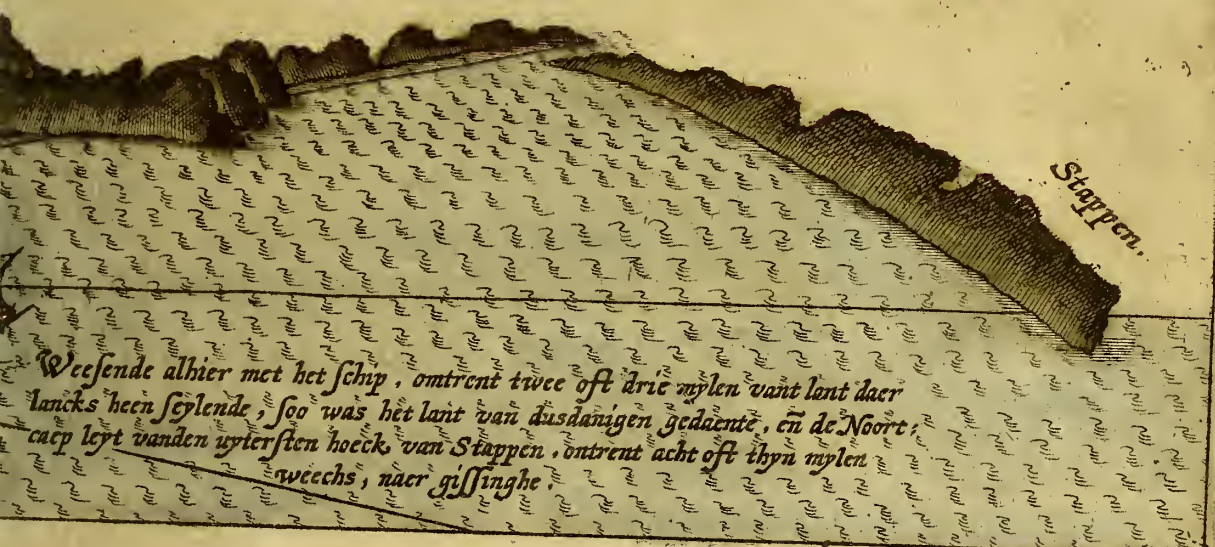 Stappen.
Weesende alhier met het schip, omtrent twee oft drie mylen vant lant daer
lancks heen seylende, soo was het lant van dusdanigen gedaente, eñ de Noort;
caep leyt vanden uytersten hoeck van Stappen, ontrent acht oft thyn mylen
weechs, naer gissinghe.